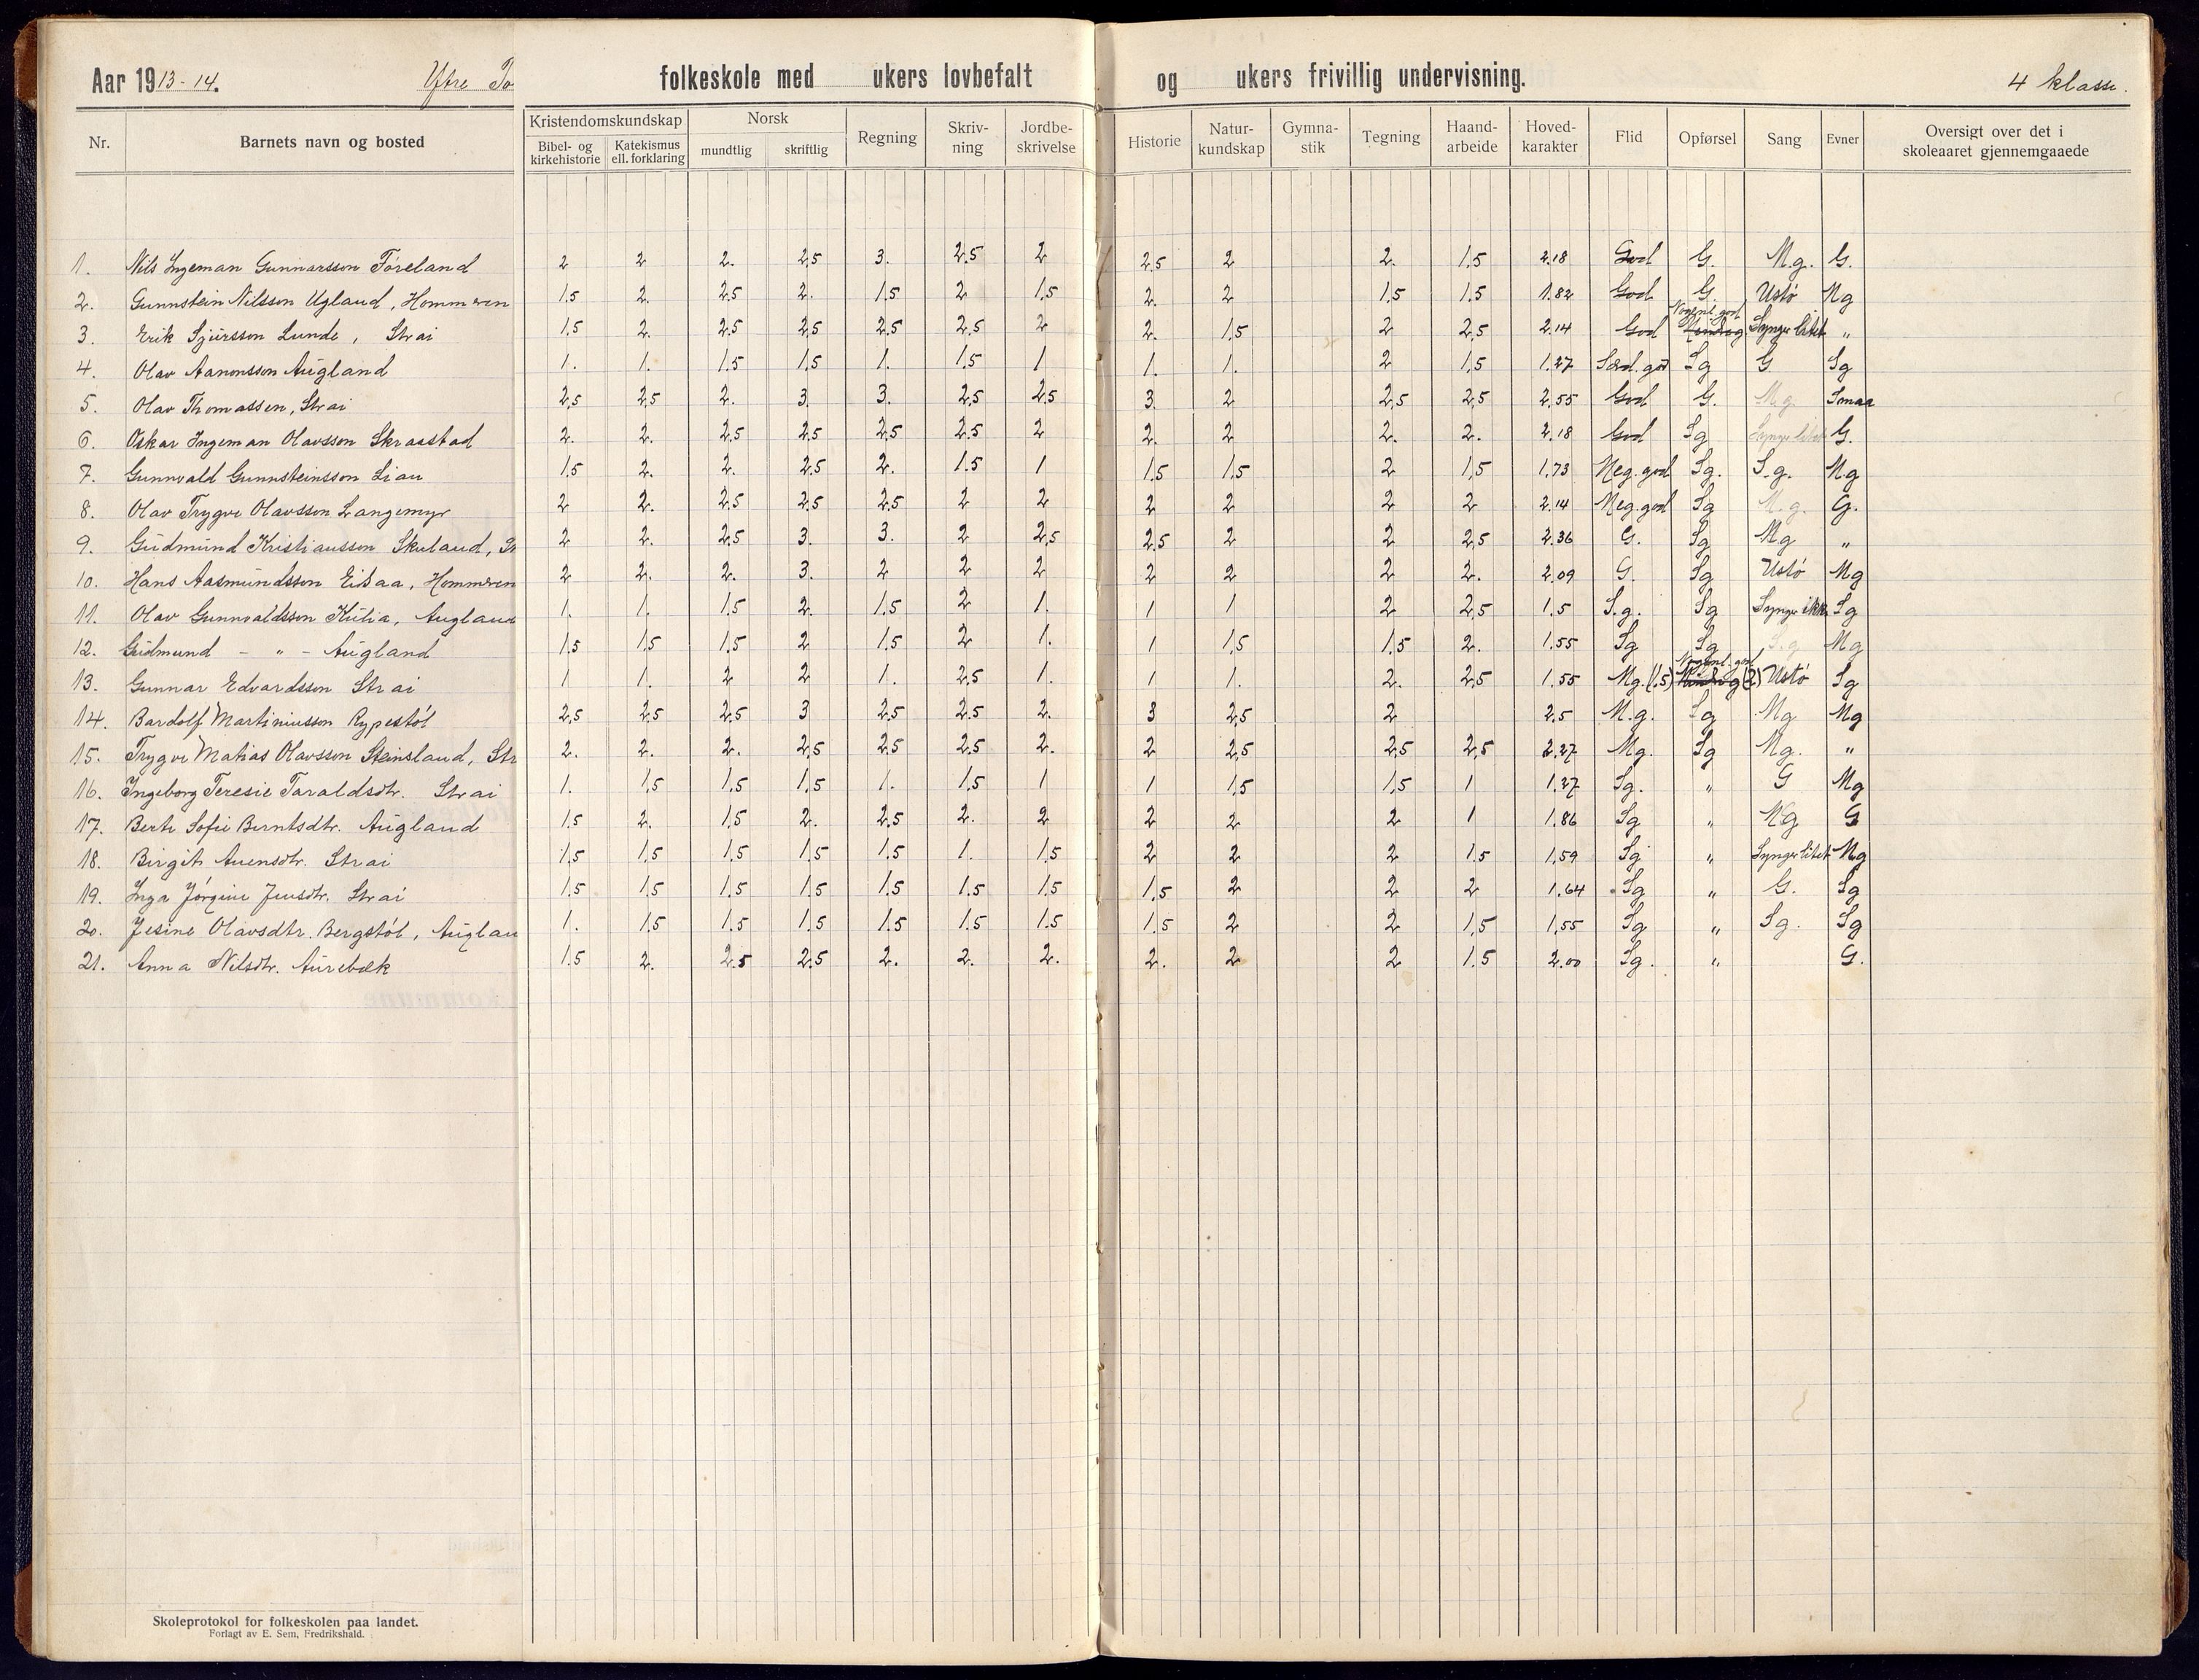 Aar 1913-14. Ytre To folkeskole med ukers lovbefalt og ukers frivillig undervisning. 4 klasse.
Nr. Barnets navn og bosted Kristendomskundskap Bibel- og kirkehistorie Katekismus ell. forklaring Norsk mundtlig skriftlig Regning Skriv-ning Jordbe-skrivelse Historie Natur-kundskap Gymna-stik Tegning Haand-arbeide Hoved-karakter Flid Opførsel Sang Evner Oversigt over det i skoleaaret gjennemgaaede
1. Nils Ingeman Gunnarsson Föreland 2 2 2. 2,5 3. 2.5 2 2.5 2 2. 1.5 2.18 God G. M.g. G.
2. Gunnstein Nilsson Ugland, Hommeren 1.5 2. 2.5 2. 1.5 2 1.5 2. 2 1.5 1.5 1.82 God G. Ustø Mg
3. Erik Sjursson Lunde, Strai 1.5 2. 2,5 2,5 2,5 2.5 2 2. 1,5 2 2,5 2.14 God Nogenl. god Synger litet "
4. Olav Aanonsson Augland 1. 1. 1.5 1,5 1. 1.5 1 1. 1. 2 1,5 1.27 Særd. god Sg G Sg
5. Olav Thomassen, Strai 2,5 2,5 2. 3. 3. 2,5 2,5 3. 2 2,5 2,5 2.55 God G. M.g. Smaa
6. Oskar Ingeman Olavsson Skraastad 2. 2. 2,5 2,5 2,5 2.5 2 2. 2 2. 2. 2.18 God Sg Synger litet G.
7. Gunnvald Gunnsteinsson Lian 1.5 2. 2. 2.5 2. 1.5 1 1.5 1,5 2 1,5 1.73 Meg. god Sg. S.g. Mg
8. Olav Trygve Olavsson Langemyr 2 2. 2.5 2,5 2,5 2 2 2 2 2 2 2.14 Meg. god Sg M.g. G.
9. Gudmund Kristiansson Skuland, St 2 2. 2.5 3. 3. 2 2,5 2.5 2 2 2,5 2.36 G. Sg Mg "
10. Hans Aasmundsson Eikaa, Hommeren 2 2. 2. 3. 2 2 2 2 2 2 2. 2.09 G. Sg Ustø Mg
11. Olav Gunnvaldsson Kulia, Augland 1. 1. 1.5 2. 1.5 2 1. 1 1 2 2,5 1.5 S.g. Sg Synger ikke Sg
12. Gudmund - " - Augland 1.5 1,5 1.5 2 1.5 2 1. 1 1,5 1.5 2. 1.55 Sg Sg S.g Mg
13. Gunnar Edvardsson Strai 1 1. 2 2 1. 2.5 1. 1 1. 2. 2,5 1.55 Mg. (1.5) Nogenl. god (2) Ustø Sg
14. Bardolf Martiniusson Rypestöl 2,5 2.5 2.5 3 2,5 2.5 2. 3 2,5 2 2.5 M.g. Sg Mg Mg
15. Trygve Matias Olavsson Steinsland, Str 2. 2. 2. 2,5 2,5 2.5 2. 2 2,5 2,5 2,5 2.27 Mg. Sg Mg. "
16. Ingeborg Teresie Taraldsdtr. Strai 1. 1,5 1,5 1.5 1. 1,5 1 1 1,5 1,5 1 1.27 Sg. " G Mg
17. Berte Sofie Berntsdtr. Augland 1.5 2. 1,5 2. 2,5 2. 2 2 2 2 1 1.86 Sg " Mg G
18. Birgit Auensdtr. Strai 1,5 1,5 1.5 1,5 1.5 1. 1.5 2 2 2 1.5 1,59 Sg " Synger litet Mg
19. Inga Jörgine Jensdtr. Strai 1.5 1.5 1.5 1.5 1,5 1.5 1.5 1.5 2 2 2 1.64 Sg " G. Sg
20. Jesine Olavsdtr. Bergstöl, Auglan 1. 1.5 1.5 1.5 1.5 1.5 1.5 1.5 2 2 1,5 1,55 Sg " Sg. Sg
21. Anna Nilsdtr. Aurebæk 1.5 2. 2.5 2.5 2. 2. 2. 2. 2 2 1.5 2.00 Sg. " G.
Skoleprotokol for folkeskolen paa landet.
Forlagt av E. Sem, Fredrikshald.